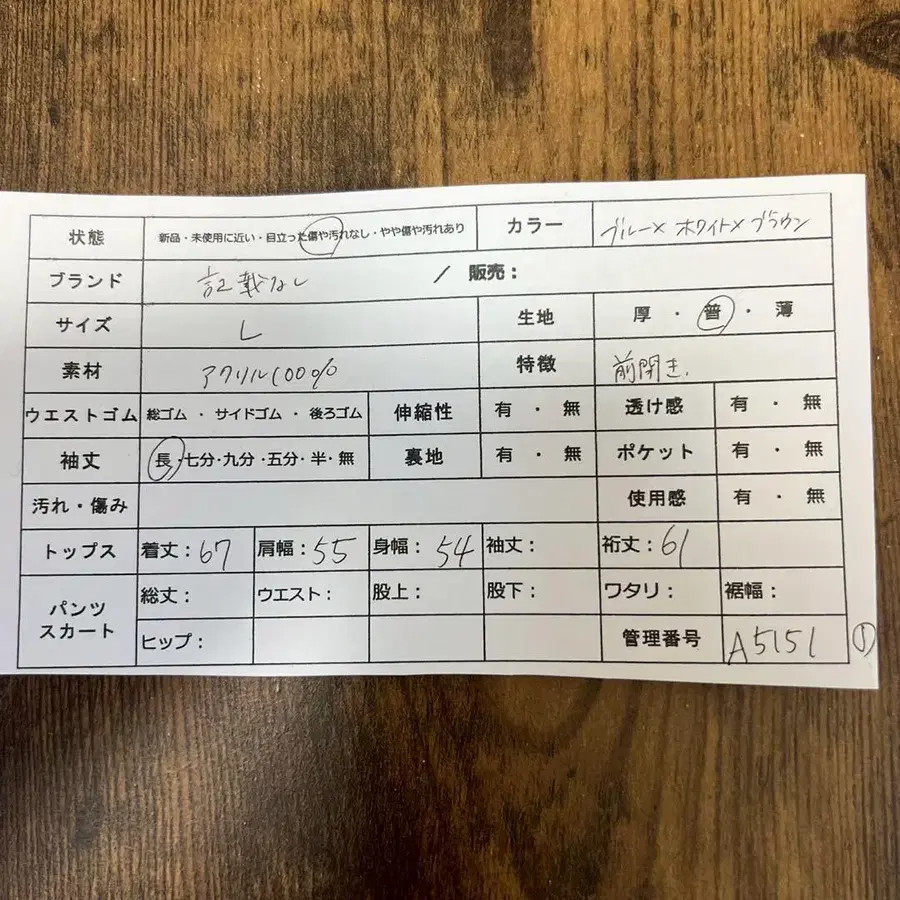 状態 新品・未使用に近い・目立った傷や汚れなし・やや傷や汚れあり カラー ブルー×ホワイト×ブラウン
ブランド 記載なし / 販売：
サイズ L 生地 厚・普・薄
素材 アクリル100% 特徴 前開き.
ウエストゴム 総ゴム・サイドゴム・後ろゴム 伸縮性 有・無 透け感 有・無
袖丈 長・七分・九分・五分・半・無 裏地 有・無 ポケット 有・無
汚れ・傷み 使用感 有・無
トップス 着丈：67 肩幅：55 身幅：54 袖丈： 裄丈：61
パンツ スカート 総丈： ウエスト： 股上： 股下： ワタリ： 裾幅：
ヒップ： 管理番号 A5151 ①